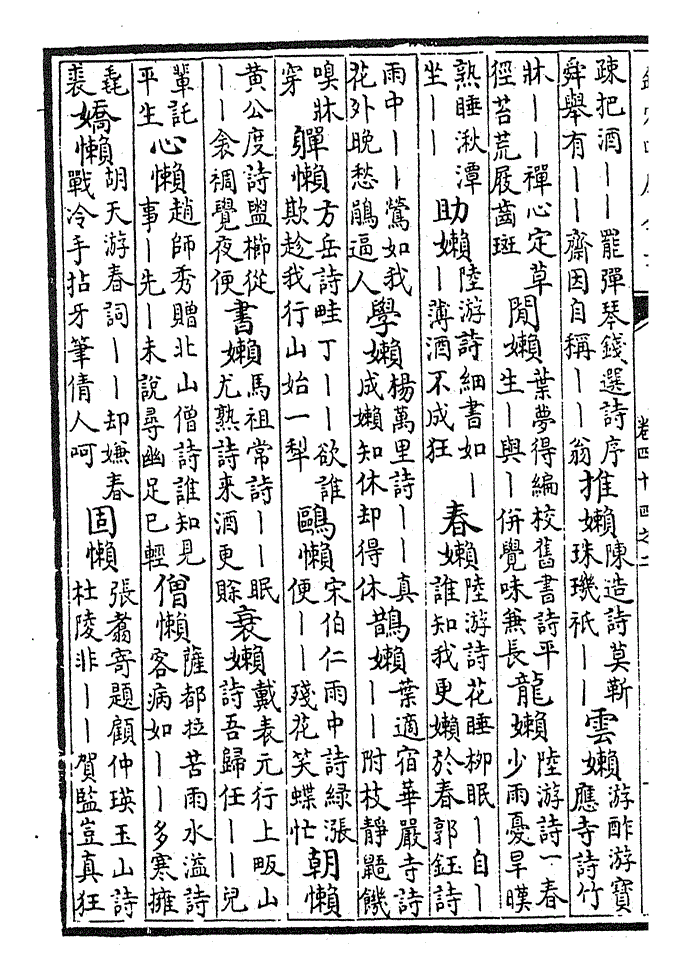 卷四十四之
疎把酒丨丨罷彈琴錢選詩序
舜舉有丨丨齋因自稱丨丨翁
推嬾
陳造詩莫靳
珠璣祇丨丨
雲嬾
游酢游寶
應寺詩竹
牀丨丨禪心定草
徑苔荒屐齒斑
閒嬾
葉夢得編校舊書詩平
生丨與丨併覺味兼長
龍嬾
陸游詩一春
少雨憂旱暵
熟睡湫潭
坐丨丨
助嬾
陸游詩細書如丨
丨薄酒不成狂
春嬾
陸游詩花睡柳眠丨自丨
誰知我更嬾於春郭鈺詩
雨中丨丨鶯如我
花外晚愁鵑逼人
學嬾
楊萬里詩丨丨真
成嬾知休却得休
鵲嬾
葉適宿華嚴寺詩
丨丨附枝靜鼯饑
嗅牀
穿
軃懶
方岳詩畦丁丨丨欲誰
欺趁我行山始一犁
鷗懶
宋伯仁雨中詩綠漲
便丨丨殘花笑蝶忙
朝懶
黄公度詩盥櫛從
丨丨衾裯覺夜便
書嬾
馬祖常詩丨丨眠
尤熟詩來酒更賒
衰嬾
戴表元行上畈山
詩吾歸任丨丨兒
輩託
平生
心懶
趙師秀贈北山僧詩誰知見
事丨先丨未說尋幽足已輕
僧懶
薩都拉苦雨水溢詩
客病如丨丨多寒擁
毳
裘
嬌懶
胡天游春詞丨丨却嫌春
戰冷手拈牙筆倩人呵
固懶
張翥寄題顧仲瑛玉山詩
杜陵非丨丨賀監豈真狂